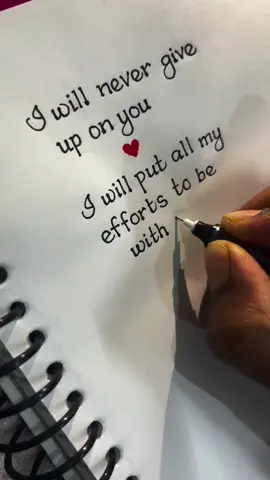 I will never give
up on you
I will put all my
efforts to be
with